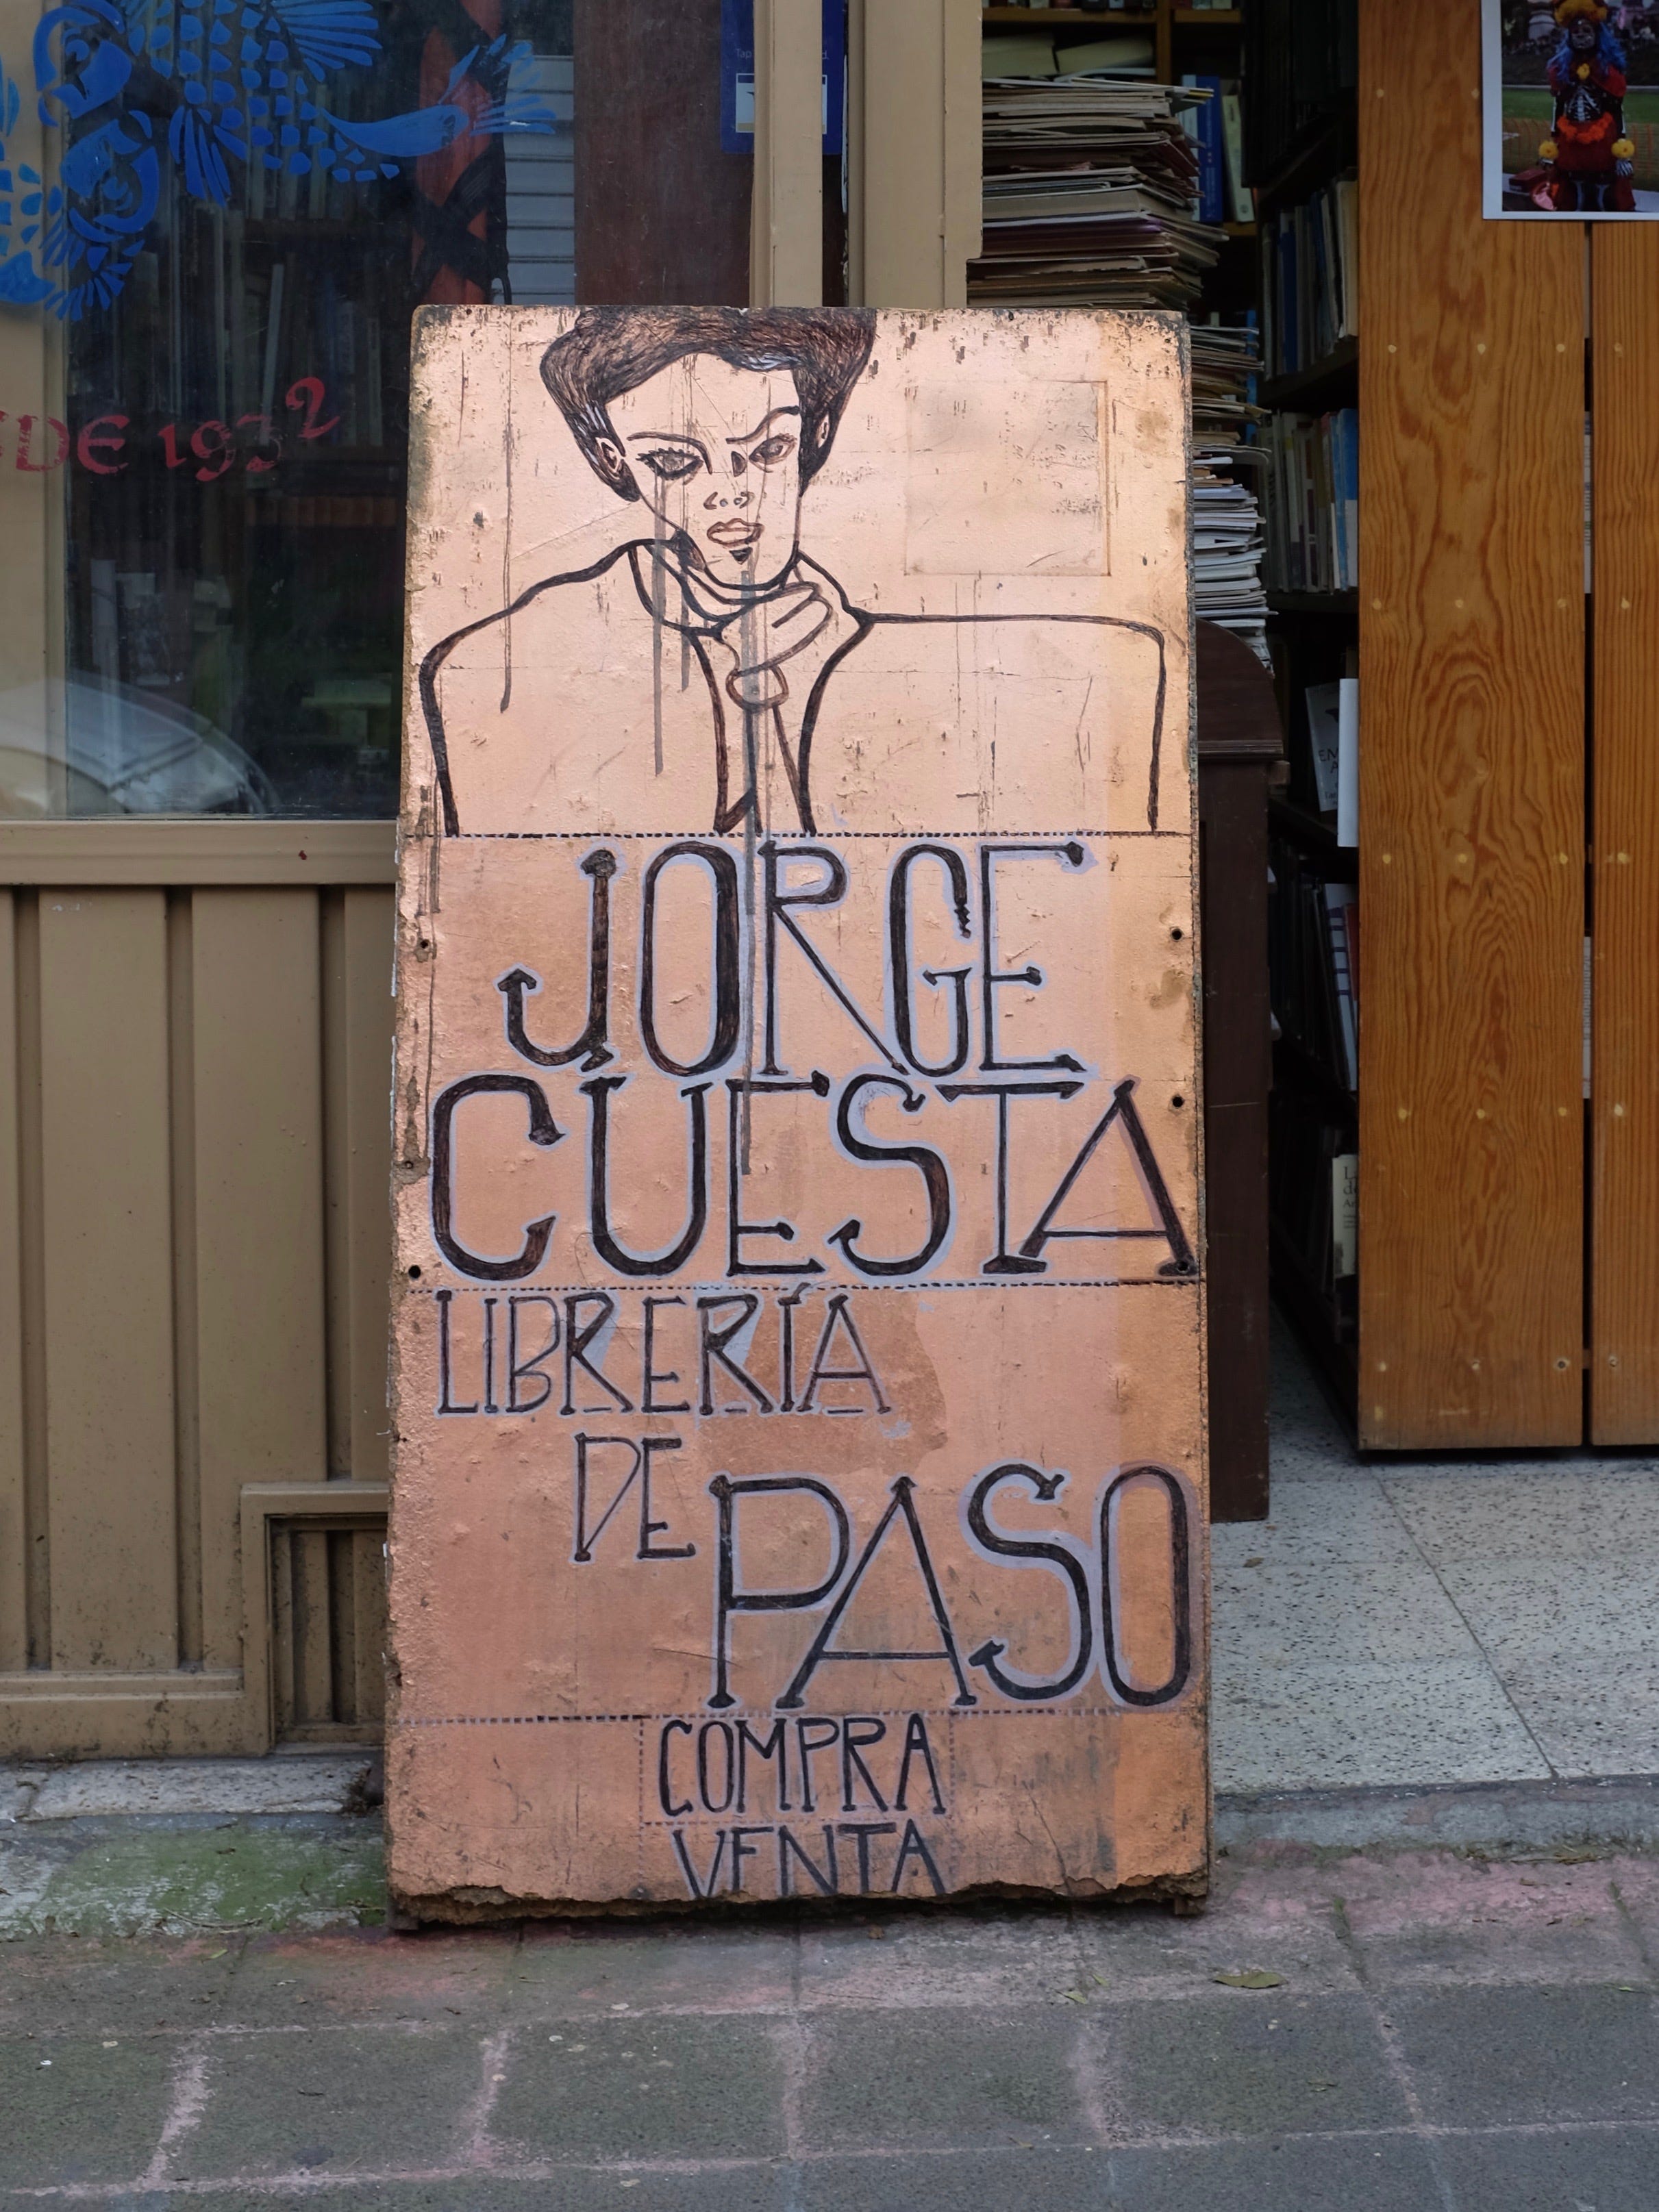 DE 1932
JORGE
CUESTA
LIBRERÍA
DE PASO
COMPRA
VENTA